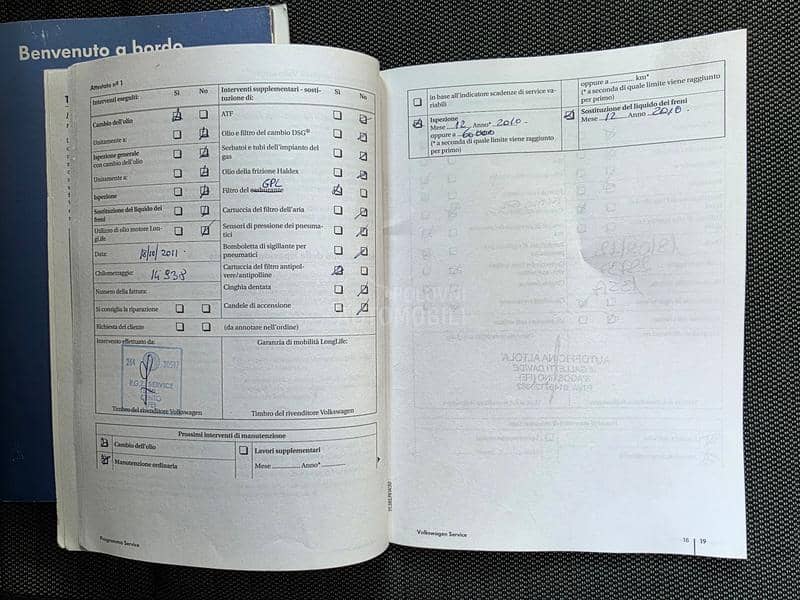 Benvenuto a bordo
Attestato n° 1
Interventi eseguiti: Sì No
Interventi supplementari - sosti-
tuzione di: Sì No
Cambio dell'olio
Unitamente a:
Ispezione generale
con cambio dell'olio
Unitamente a:
Ispezione
Sostituzione del liquido dei
freni
Utilizzo di olio motore Lon-
gLife
Data: 18/10/2011
Chilometraggio: 14 938
Numero della fattura:
Si consiglia la riparazione
Richiesta del cliente
ATF
Olio e filtro del cambio DSG®
Serbatoi e tubi dell'impianto del
gas
Olio della frizione Haldex
GPL
Filtro del carburante
Cartuccia del filtro dell'aria
Sensori di pressione dei pneuma-
tici
Bomboletta di sigillante per
pneumatici
Cartuccia del filtro antipol-
vere/antipolline
Cinghia dentata
Candele di accensione
(da annotare nell'ordine)
Intervento effettuato da:
SERVICE
CENTO
Timbro del rivenditore Volkswagen
Garanzia di mobilità LongLife:
Timbro del rivenditore Volkswagen
Prossimi interventi di manutenzione
Cambio dell'olio
Manutenzione ordinaria
Lavori supplementari
Mese Anno*
Programma Service
in base all'indicatore scadenze di service va-
riabili
Ispezione
Mese 12 Anno* 2010
oppure a
(* a seconda di quale limite viene raggiunto
per primo)
oppure a km*
(* a seconda di quale limite viene raggiunto
per primo)
Sostituzione del liquido dei freni
Mese 12 Anno 2010
Volkswagen Service
18 19